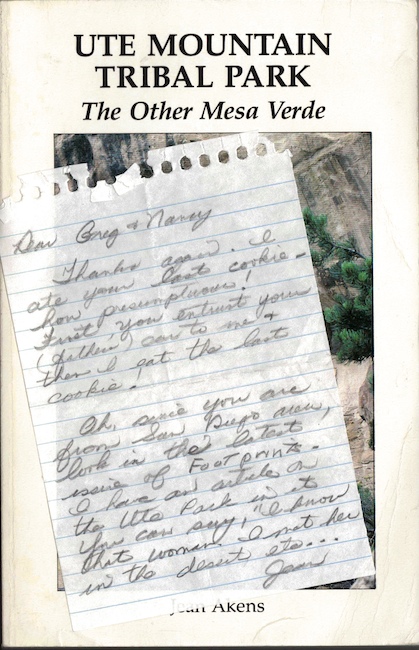 UTE MOUNTAIN
TRIBAL PARK
The Other Mesa Verde
Dear Greg & Nancy
Thanks again. I
ate your last cookie -
how presumptuous!
First you entrust your
car to me &
then I eat the last
cookie!
Oh, since you are
from San Diego area,
look in the latest
issue of Footprints.
I have an article on
the Ute Park in it
You can say, "I know
that woman - I met her
in the desert etc...
Jean
Jean Akens